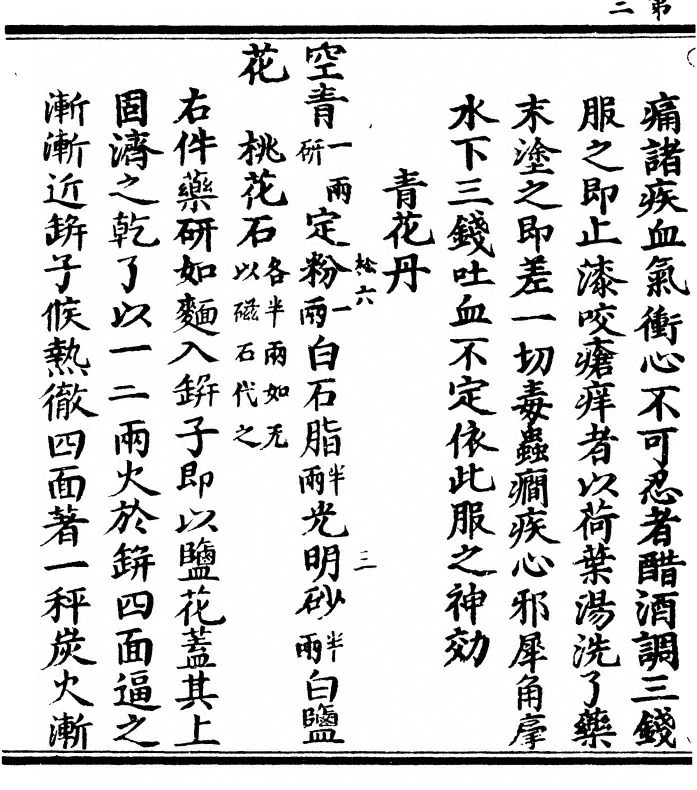 痛諸疾血氣衝心不可忍者醋酒調三錢
服之即止漆咬瘡痒者以荷葉湯洗了藥
末塗之即差一切毒蟲癇疾心邪犀角摩
水下三錢吐血不定依此服之神効
青花丹
六 三
空青一兩研定粉一兩白石脂半兩光明砂半兩白鹽
花 桃花石各半兩如无以磁石代之
右件藥研如麵入缾子即以鹽花蓋其上
固濟之乾了以一二兩火於缾四面逼之
漸漸近缾子候熱徹四面著一秤炭火漸